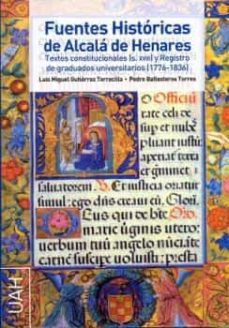 Fuentes Históricas
de Alcalá de Henares
Textos constitucionales (s. XVII) y Registro
de graduados universitarios (1776-1836)
Luis Miguel Gutiérrez Torrecilla · Pedro Ballesteros Torres
Officiū
rate celi de
sup et nubē
pluant iustū:
aperiatur terra
et germinet
saluatorem
Deus qui de bīte
marie uirginis utero:
verbum tuū angelo nūciāte
carnē suscipe voluisti: presta
UAH